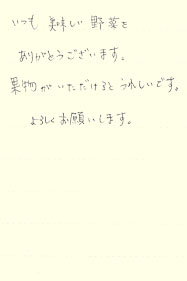 いつも 美味しい 野菜を
ありがとうございます。
果物がいただけるとうれしいです。
よろしくお願いします。